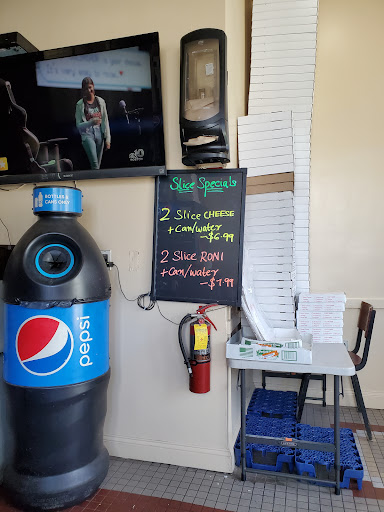 BOTTLES &
CANS ONLY
pepsi
Slice Specials
2 Slice CHEESE
+ Can/water
- $6.99
2 Slice RONI
+ Can/water
- $7.99
10